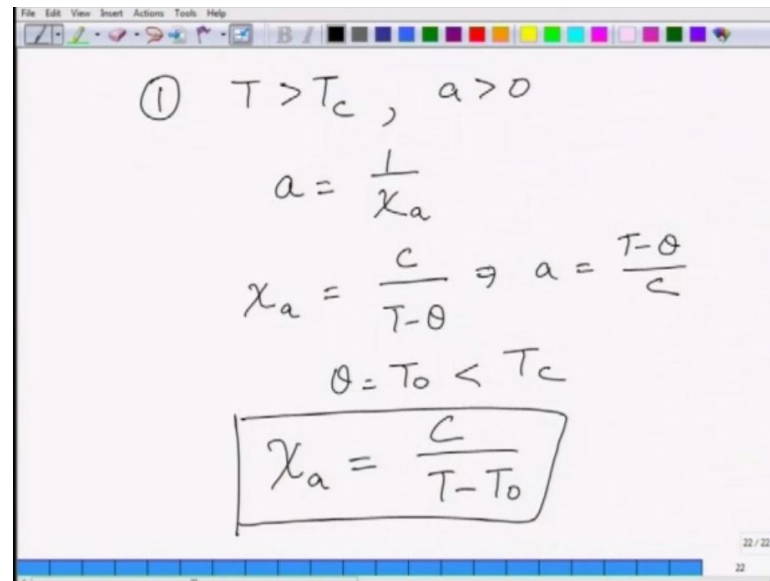 File Edit View Insert Actions Tools Help
B I
① T > Tc , a > 0
a = 1/χa
χa = C/(T-θ) ⇒ a = (T-θ)/C
θ = To < Tc
χa = C/(T-To)
22 / 22
22